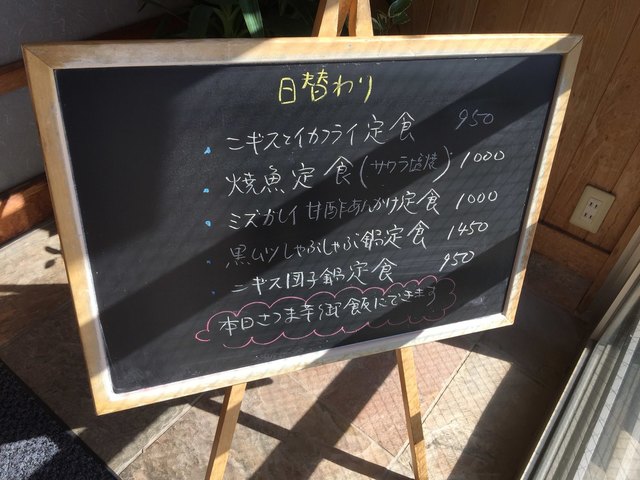 日替わり
ニギスとイカフライ定食 950
焼魚定食(サワラ塩焼) 1000
ミズガレイ甘酢あんかけ定食 1000
黒ムツしゃぶしゃぶ鍋定食 1450
ニギス団子鍋定食 950
本日さつま芋御飯にできます